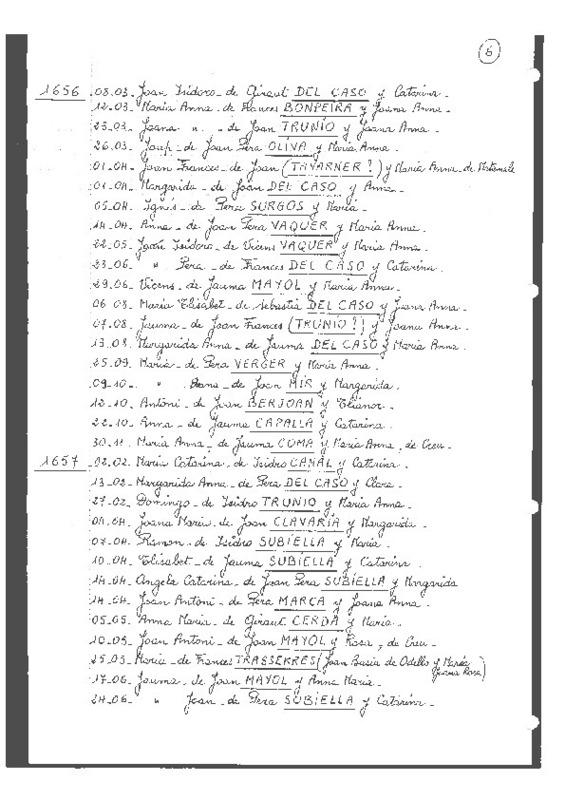 6
1656 - 08.03. Joan Isidoro - de Giraut DEL CASO y Catarina -
12.03 - Maria Anna - de Frances BONPEIRA y Joana Anna -
25.03. Joana " . - de Joan TRUNIO y Joana Anna -
26.03 - Josep - de Joan Pera OLIVA y Maria Anna -
01.04 - Joan Frances - de Joan (TAVARNER ?) y Maria Anna - de
01.04 - Margarida - de Joan DEL CASO y Anna -
05.04 - Ignés - de Pera SURGOS y Maria -
14.04 - Anna - de Joan Pera VAQUER y Maria Anna -
22.05 - Joan Isidoro - de Vicens VAQUER y Maria Anna -
23.06 - " Pera - de Frances DEL CASO y Catarina -
29.06 - Vicens - de Jauma MAYOL y Maria Anna -
06.08 - Maria Elisabet - de Sebastia DEL CASO y Joana Anna -
07.08 - Jauma - de Joan Frances (TRUNIO ?) y Joana Anna -
13.08 - Margarida Anna - de Jauma DEL CASO y Maria Anna -
25.09 - Maria - de Pera VERGER y Maria Anna -
09.10 - " Anna - de Joan MIR y Margarida -
12.10 - Antoni - de Joan BERJOAN y Elianor -
22.10 - Anna - de Jauma CAPALLA y Catarina -
30.11 - Maria Anna - de Jauma COMA y Maria Anna, de Creu -
1657 - 02.02 - Maria Catarina - de Isidro CANAL y Catarina -
13.02 - Margarida Anna - de Pera DEL CASO y Clara -
27.02 - Domingo - de Isidro TRUNIO y Maria Anna -
01.04 - Joana Maria - de Joan CLAVARIA y Margarida -
07.04 - Ramon - de Isidro SUBIELLA y Maria -
10.04 - Elisabet - de Jauma SUBIELLA y Catarina -
14.04 - Angela Catarina - de Joan Pera SUBIELLA y Margarida
14.04 - Joan Antoni - de Pera MARCA y Joana Anna -
05.05 - Anna Maria - de Giraut CERDA y Maria -
10.05 - Joan Antoni - de Joan MAYOL y Rosa, de Creu -
25.05 - Maria - de Frances TRASSERRES (Joan Basia de Odello y Maria Joana Rosa)
17.06 - Jauma - de Joan MAYOL y Anna Maria -
24.06 - " Joan - de Pera SUBIELLA y Catarina -